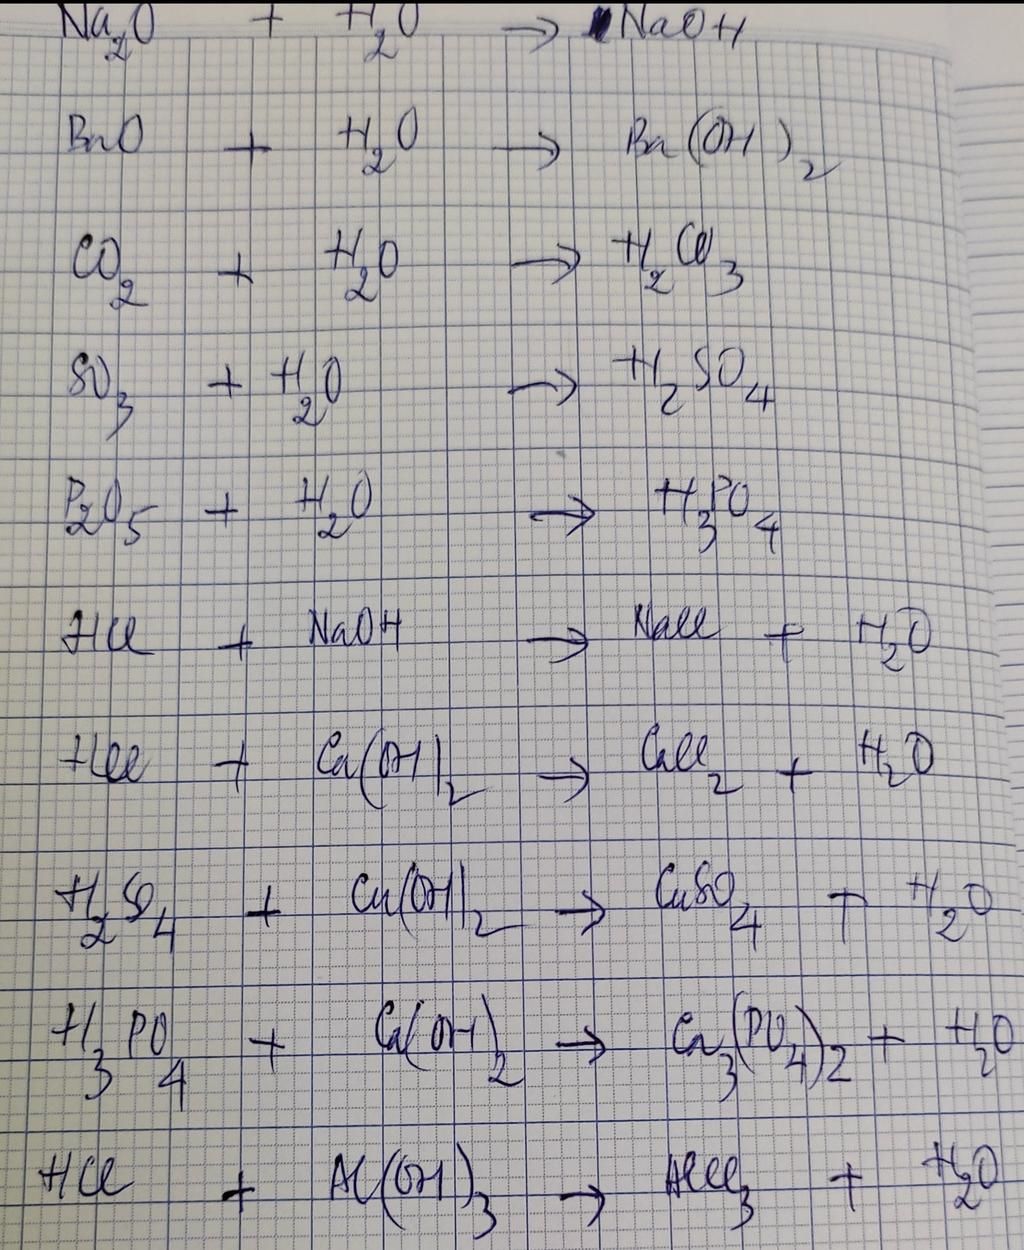 Na₂O + H₂O → NaOH
BaO + H₂O → Ba(OH)₂
CO₂ + H₂O → H₂CO₃
SO₃ + H₂O → H₂SO₄
P₂O₅ + H₂O → H₃PO₄
HCl + NaOH → NaCl + H₂O
HCl + Ca(OH)₂ → CaCl₂ + H₂O
H₂SO₄ + Cu(OH)₂ → CuSO₄ + H₂O
H₃PO₄ + Ca(OH)₂ → Ca₃(PO₄)₂ + H₂O
HCl + Al(OH)₃ → AlCl₃ + H₂O